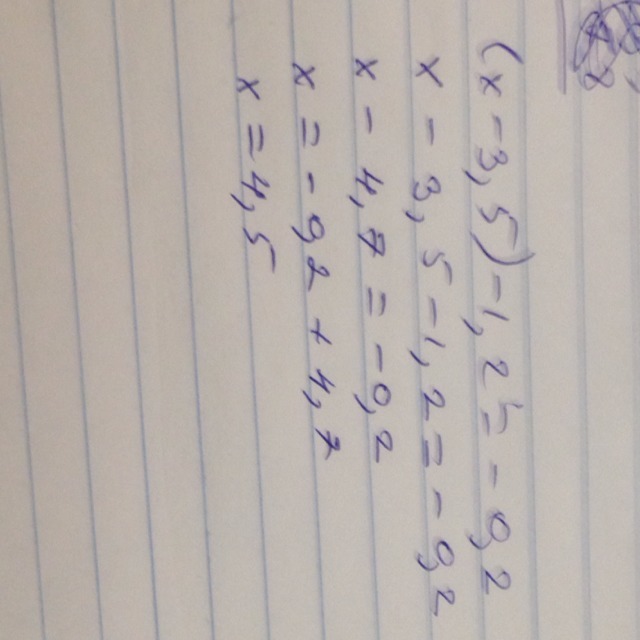 (x-3,5)-1,2=-9,2
x-3,5-1,2=-9,2
x-4,7=-9,2
x=-9,2+4,7
x=4,5